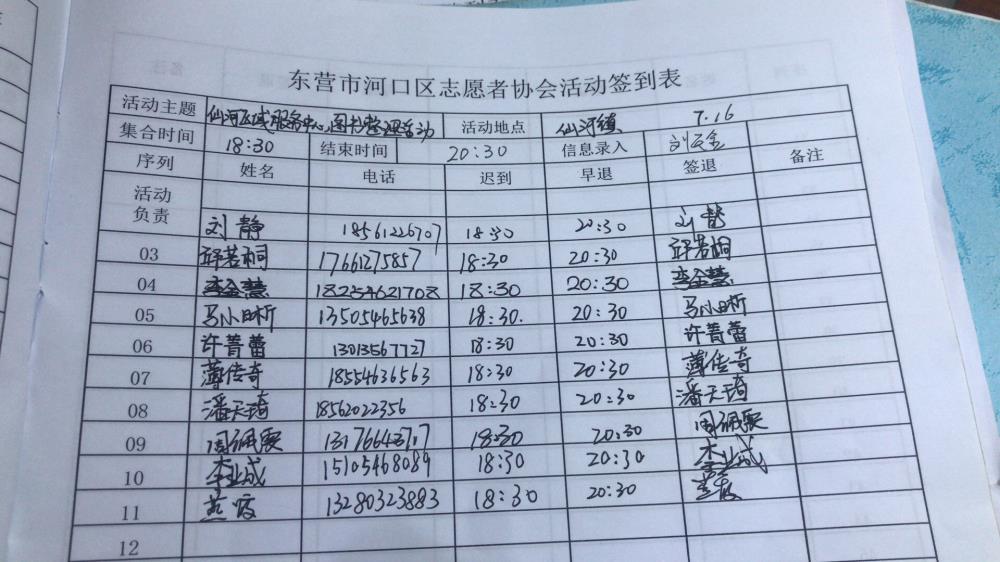 东营市河口区志愿者协会活动签到表
活动主题 仙河区域服务中心图书整理活动 活动地点 仙河镇 7.16
集合时间 18:30 结束时间 20:30 信息录入 刘云金
序列 姓名 电话 迟到 早退 签退 备注
活动负责 刘静 18561226707 18:30 20:30 刘静
03 邱若桐 17661275857 18:30 20:30 邱若桐
04 李金慧 18254621708 18:30 20:30 李金慧
05 马小晰 13505465638 18:30. 20:30 马小晰
06 许菁蕾 13013567727 18:30 20:30 许菁蕾
07 薄传奇 18554636563 18:30 20:30 薄传奇
08 潘天琦 18562022356 18:30 20:30 潘天琦
09 周佩 18:30 20:30 周佩
10 李业成 15105468089 18:30 20:30 李业成
11 13280323883 18:30 20:30
12